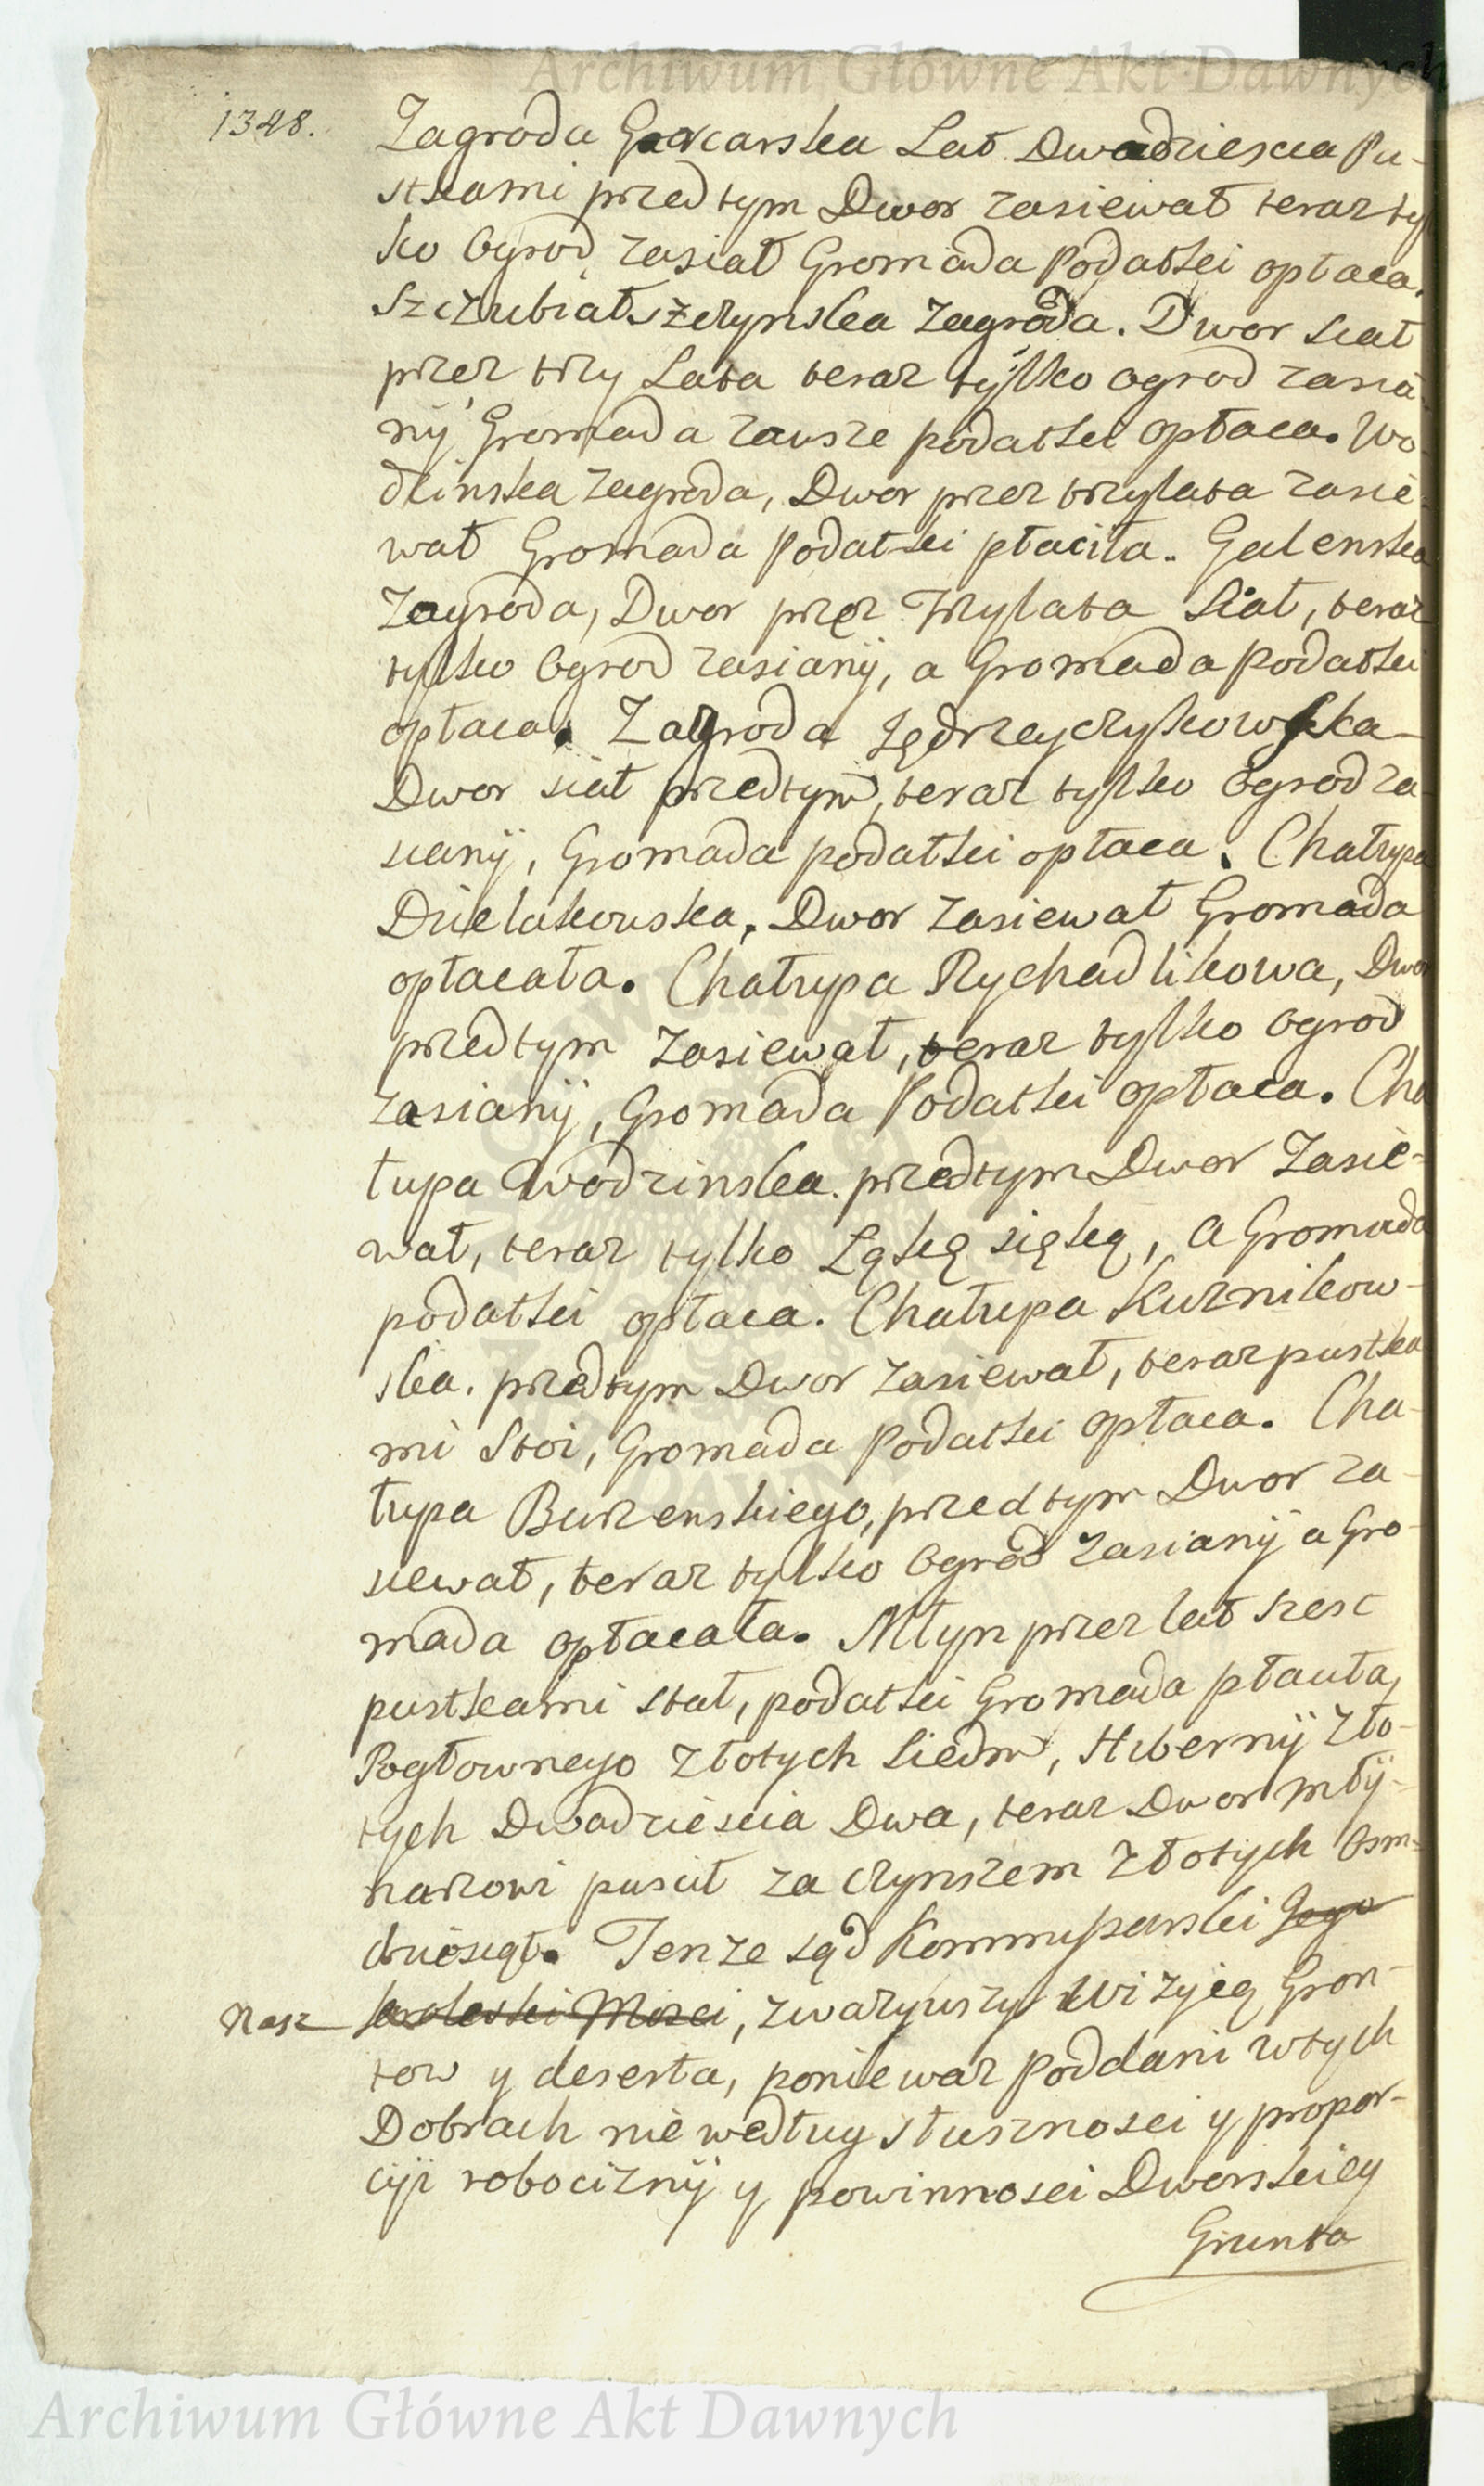 Archiwum Główne Akt Dawnych
1348.
Zagroda Garcarska Lat Dwadziescia Pu-
stkami przedtym Dwor zasiewał teraz tyl
ko Ogrod zasiał Gromada Podatki opłaca.
Szczubiałszczynska Zagroda. Dwor siał
przez trzy Lata teraz tylko ogrod zasia-
nÿ Gromada zausze podatki opłaca. Wo-
dzinska zagroda, Dwor przez trzylata zasie-
wał Gromada Podatki płaciła. Galenska
Zagroda, Dwor przez Trzylata Siał, teraz
tylko Ogrod zasianÿ, a Gromada Podatki
opłaca. Zagroda Jędrzeyczykowska
Dwor siał przedtym, teraz tylko Ogrod za-
sianÿ, Gromada podatki opłaca. Chałupa
Dzielakouska, Dwor zasiewał Gromada
opłacała. Chałupa Rychadlikowa, Dwor
przedtym Zasiewał, teraz tylko Ogrod
zasianÿ, Gromada Podatki opłaca. Cha
łupa Wodzinska. przedtym Dwor Zasie-
wał, teraz tylko Łąkę sięką, a Gromada
podatki opłaca. Chałupa Kuznikow-
ska. przedtym Dwor Zasiewał, teraz pustka
mi Stoi, Gromada Podatki opłaca. Cha-
łupa Burzenskiego, przedtym Dwor za-
siewał, teraz tylko Ogrod zasianÿ a Gro-
mada opłacała. Młyn przez lat szesc
pustkami stał, podatki Gromada płaciła,
Pogłownego Złotych Siedm, Hibernÿ Zło-
tych Dwadziescia Dwa, teraz Dwor młÿ-
narzowi puscił za czynszem Złotych Osm-
dziesiąt. Tenze sąd Kommissarski Jego
Nasz Krolewski Mosci, zwazywszy Wizyją Gron-
tow y deserta, poniewaz Poddani wtych
Dobrach nie według słusznosci y propor-
cyi robociznÿ y powinnosci Dworskiey
Grunta
Archiwum Główne Akt Dawnych